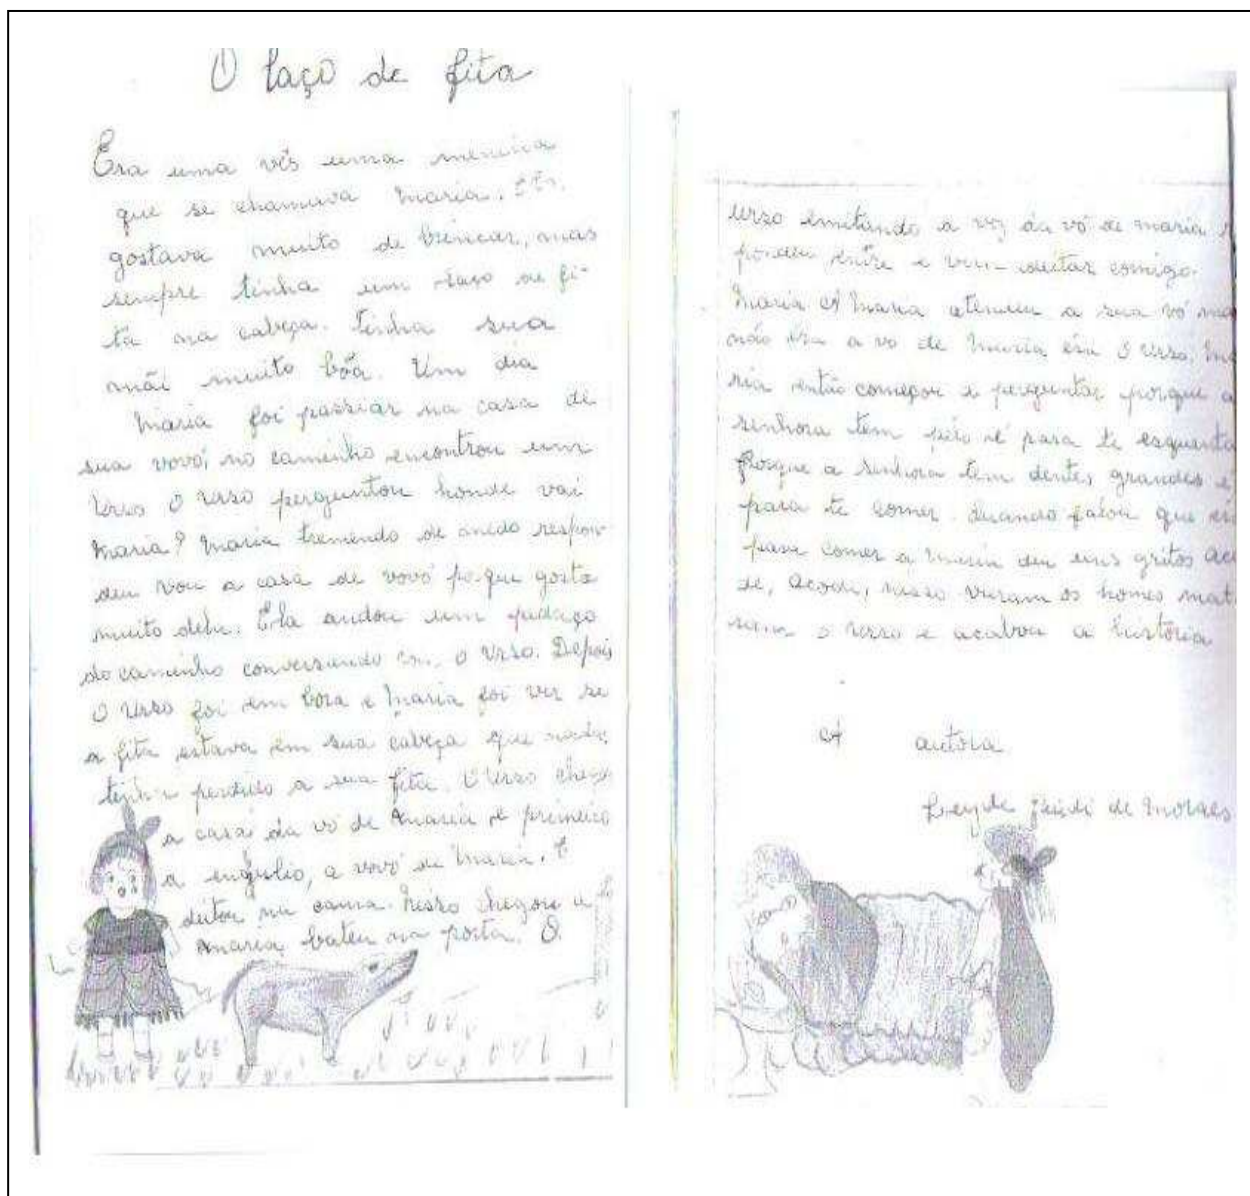 O laço de fita
Era uma vês uma menina
que se chamava Maria. Ela
gostava muito de brincar, mas
sempre tinha um laço de fi-
ta na cabeça. tinha sua
mãi muito bôa. Um dia
Maria foi passiar na casa de
sua vovó, no caminho encontrou um
Urso O urso perguntou honde vai
Maria? Maria tremendo de medo respon-
deu vou a casa de vovó porque gosto
muito dela. Ela andou um pedaço
do caminho conversando com o urso. Depois
O urso foi em bora e Maria foi ver se
a fita estava em sua cabeça que nada,
tinha perdido a sua fita. O Urso
a casa da vó de Maria e primeiro
a engulio, a vovó de Maria. E
deitou na cama. Nisso chegou a
Maria, bateu na porta. O.
urso emitando a voz da vó de maria
pondeu entre e vem deitar comigo.
Maria A Maria atendeu a sua vó
não era a vó de Maria era o urso. Ma
ria então começou a perguntar porque a
senhora tem pêlo é para te esquenta
Porque a senhora tem dentes grandes é
para te comer. Quando falou que
para comer a Maria deu uns gritos aco
de, acode, nisso vieram os homes mat
o urso e acabou a história
A autora
de Moraes